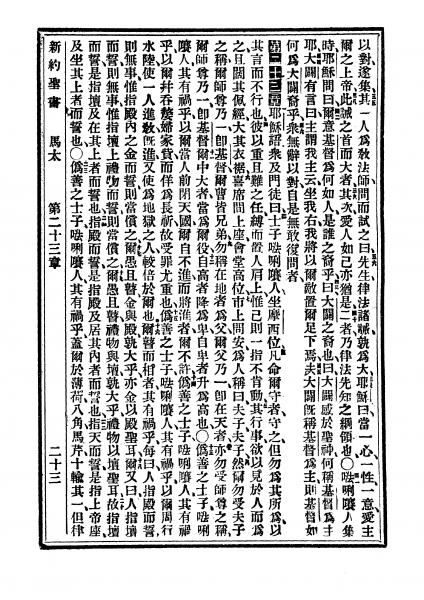 以對遂集其一人爲敎法師問而試之曰先生律法諸誡孰爲大耶穌曰當一心一性一意愛主
爾之上帝此誡之首而大者其次愛人如己亦猶是二者乃律法先知之綱領也〇𠵽唎㘔人集
時耶穌問曰爾意基督爲何如人是誰之裔乎曰大闢曰大闢感於聖神何稱基督爲主
耶大闢有言曰主謂我主云坐我右我將以爾敵置爾足下焉夫大闢旣稱基督爲主則基督如
何爲大闢裔乎衆無辭以對自是無敢復問者
第二十三章耶穌語衆及門徒曰士子𠵽唎㘔人坐摩西位凡命爾守者守之但勿爲其所爲以
其言而不行也彼以重且難之任縛而置人肩上惟己則一指不肯動其行事欲以見於人而爲
之且闊其佩經大其衣裾喜席間上座會堂高位市上問安爲人稱曰夫子夫子然爾勿受夫子
之稱爾師尊乃一卽基督爾曹皆兄弟勿稱在地者爲父爾父乃一卽在天者亦勿受師尊之稱
爾師尊乃一卽基督爾中大者當爲爾役自高者降爲卑自卑者升爲高也〇僞善之士子𠵽唎
㘔人其有禍乎以爾當人前閉天國自不進而將進者爾不許僞善之士子𠵽唎㘔人其有禍
乎以爾幷吞嫠婦家貲而佯爲長祈故受罪尤重也僞善之士子𠵽唎㘔人其有禍乎以爾周行
水陸使一人進敎旣進又使爲地獄之人較倍於爾也爾瞽而相者其有禍乎每曰人指殿而誓
則無事惟指殿內之金而誓則當償之爾愚且瞽金與殿孰大乎亦金以殿聖耳爾又曰人指壇
而誓則無事惟指壇上禮物而誓則當償之爾愚且瞽禮物與壇孰大乎禮物以壇聖耳故指壇
而誓是指壇及在其上者而誓也指殿而誓是指殿及居其內者而誓也指天而誓是指上帝座
及坐其上者而誓也〇僞善之士子𠵽唎㘔人其有禍乎蓋爾於薄荷八角馬芹十輸其一但律
新約聖書 馬太 第二十三章 二十三